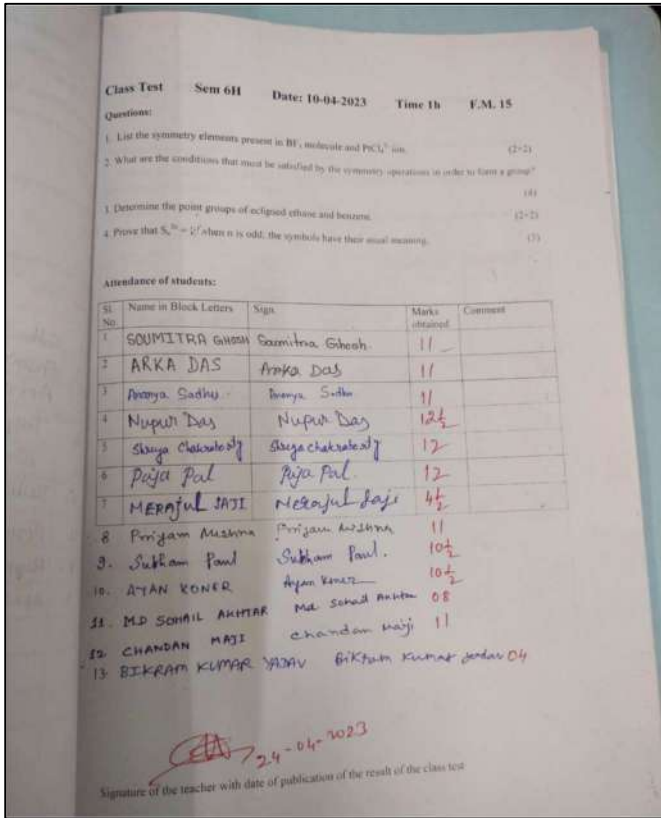 Class Test Sem 6H Date: 10-04-2023 Time 1h F.M. 15
Questions:
1. List the symmetry elements present in BF3 molecule and PtCl4²⁻ ion. (2+2)
2. What are the conditions that must be satisfied by the symmetry operations in order to form a group?
(4)
3. Determine the point groups of eclipsed ethane and benzene. (2+2)
4. Prove that when n is odd; the symbols have their usual meaning. (3)
Attendance of students:
Sl. No. Name in Block Letters Sign. Marks obtained Comment
1 SOUMITRA GHOSH Soumitra Ghosh. 11
2 ARKA DAS Arka Das 11
3 Ananya Sadhu. Ananya Sadhu 11
4 Nupur Das Nupur Das 12½
5 Shreya Chakraborty Shreya Chakraborty 12
6 Puja Pal Puja Pal. 12
7 MERAJUL SAJI Merajul Saji 4½
8 Priyam Mishra Priyam Mishra 11
9. Subham Paul Subham Paul. 10½
10. AYAN KONER Ayan Koner 10½
11. MD SOHAIL AKHTAR Md Sohail Akhtar 08
12 CHANDAN MAJI Chandan Maji 11
13. BIKRAM KUMAR YADAV Bikram Kumar Yadav 04
24-04-2023
Signature of the teacher with date of publication of the result of the class test